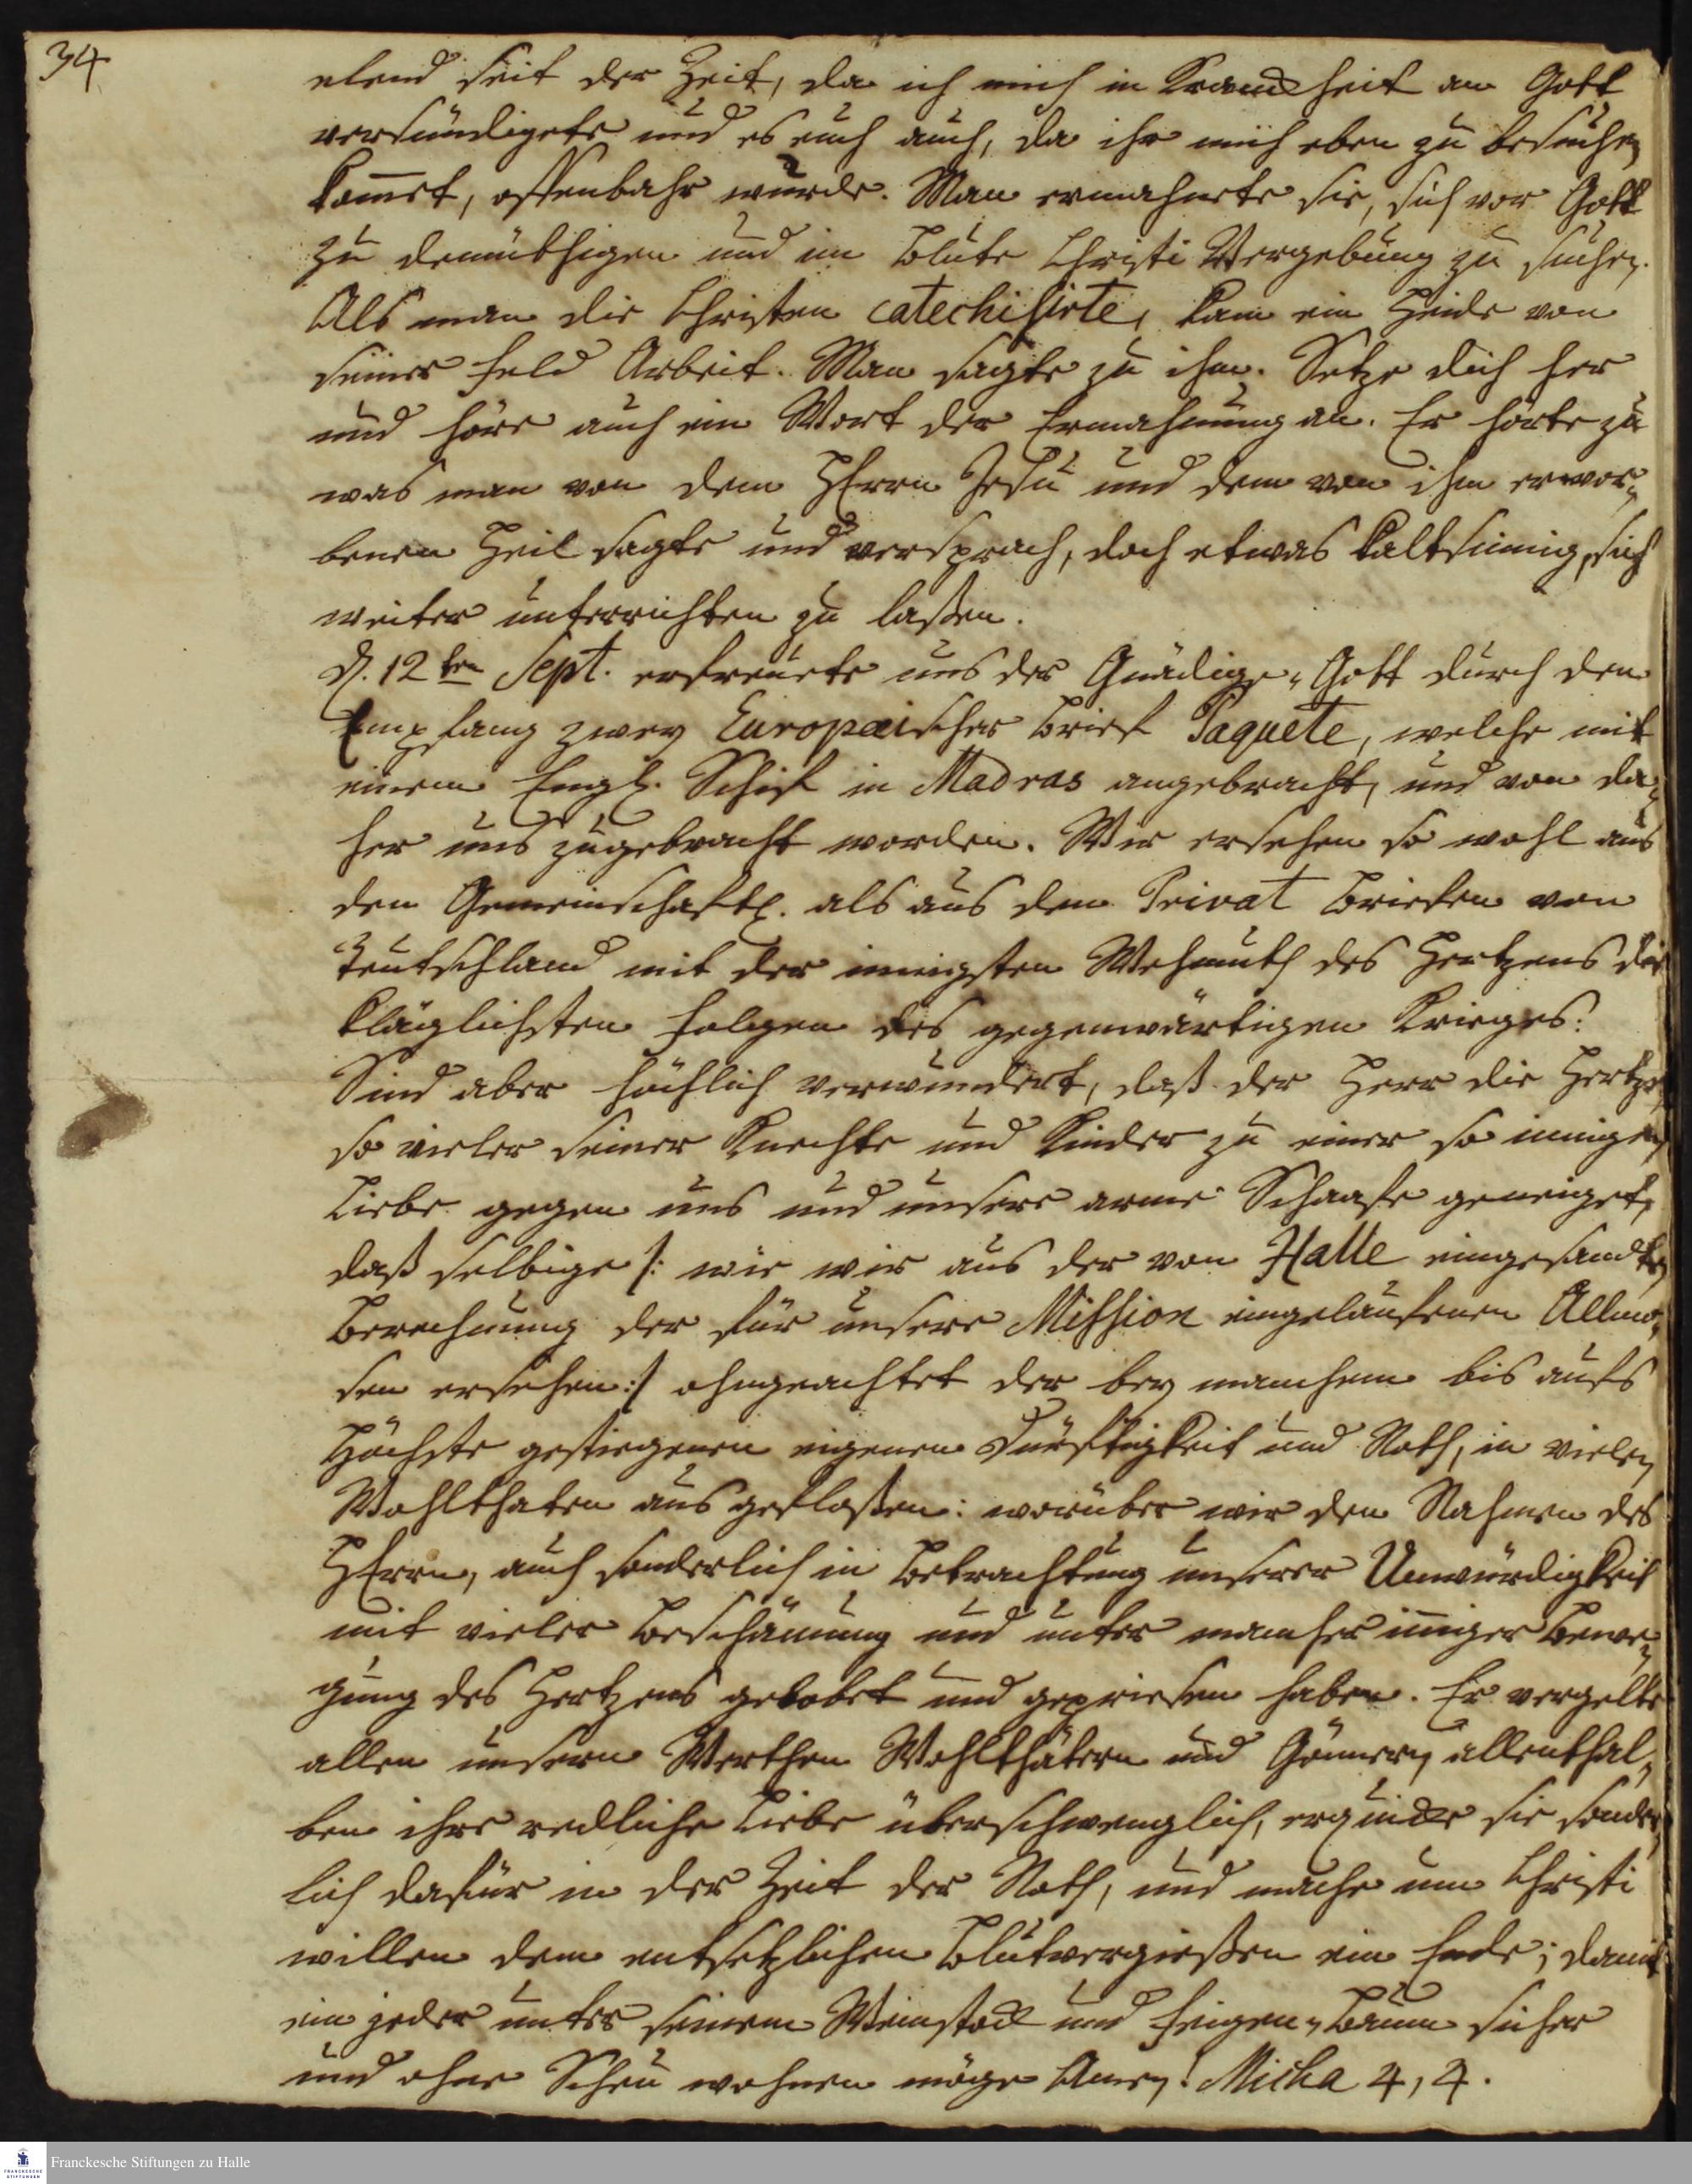 34
elend seit der Zeit, da ich mich in Kranckheit an Gott
versündigete und es euch auch, da ihr mich eben zu besuchen
kom̄et, offenbahr wurde. Man ermahnete sie, sich vor Gott
zu demüthigen und im Blute Christi Vergebung zu suchen.
Als man die Christen catechisirte, kam ein Heide von
seiner Feld Arbeit. Man sagte zu ihm. Setze dich her
und höre auch ein Wort der Ermahnung an. Er hörte zu
was man von dem HErrn Jesu und dem von ihm erwor„
benen Heil sagte und versprach, doch etwas kaltsinnig, sich
weiter unterrichten zu laßen.
d. 12ten Sept. erfreuete uns der Gnädige Gott durch den
Empfang zwey Europaeischer Brief Paquete, welche mit
einem Engl. Schif in Madras angebracht, und von da„
her uns zugebracht worden. Wir ersehen so wohl aus
den Gemeinschaftl. als aus den Privat Briefen von
Teutschland mit der innigsten Wehmuth des Hertzens die
kläglichsten Folgen des gegenwärtigen Krieges:
Sind aber höchlich verwundert, daß der Herr die Hertzen
so vieler seiner Knechte und Kinder zu einer so innigen
Liebe gegen uns und unsere arme Schaafe geneiget,
daß selbige /: wie wir aus der von Halle eingesandten
Berechnung der für unsere Mission eingelaufenen Allmo„
sen ersehen :/ ohngeachtet der bey manchem bis aufs
Höchste gestiegenen eigenen Dürftigkeit und Noth, in vielen
Wohlthaten ausgefloßen: worüber wir den Nahmen des
HErrn, auch sonderlich in Betrachtung unserer Unwürdigkeit
mit vieler Beschämung und unter mancher in̄iger Bewe„
gung des Hertzens gelobet und gepriesen haben. Er vergelte
allen unsern Werthen Wohlthätern und Gönnern allenthal„
ben ihre redliche Liebe überschwenglich, erquicke sie sonder„
lich dafür in der Zeit der Noth, und mache um Christi
willen dem entsetzlichen Blutvergießen ein Ende; damit
ein jeder unter seinem Weinstock und Feigen„Baum sicher
und ohne Scheu wohnen möge Amen! Micha 4, 4.
Franckesche Stiftungen zu Halle
FRANCKESCHE
STIFTUNGEN